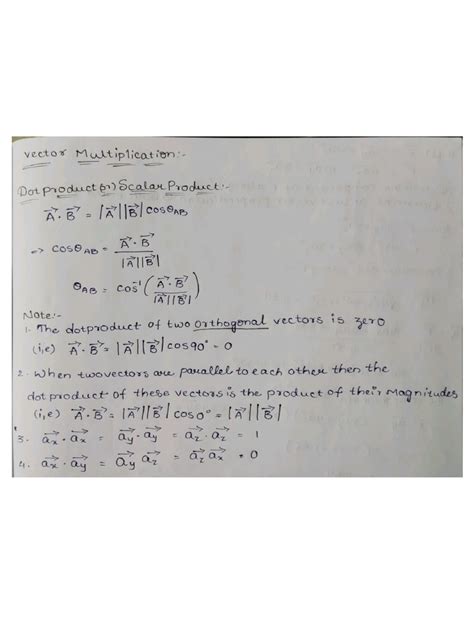 Vector Multiplication:-
Dot product (or) Scalar Product:-
A⃗ · B⃗ = |A⃗||B⃗| cosθ_AB
=> cosθ_AB = A⃗ · B⃗ / |A⃗||B⃗|
θ_AB = cos⁻¹ (A⃗ · B⃗ / |A⃗||B⃗|)
Note:-
1. The dotproduct of two orthogonal vectors is zero
(i,e) A⃗ · B⃗ = |A⃗||B⃗| cos90° = 0
2. When two vectors are parallel to each other then the
dot product of these vectors is the product of their Magnitudes
(i,e) A⃗ · B⃗ = |A⃗||B⃗| cos0° = |A⃗||B⃗|
3. a⃗x · a⃗x = a⃗y · a⃗y = a⃗z · a⃗z = 1
4. a⃗x · a⃗y = a⃗y a⃗z = a⃗z a⃗x = 0